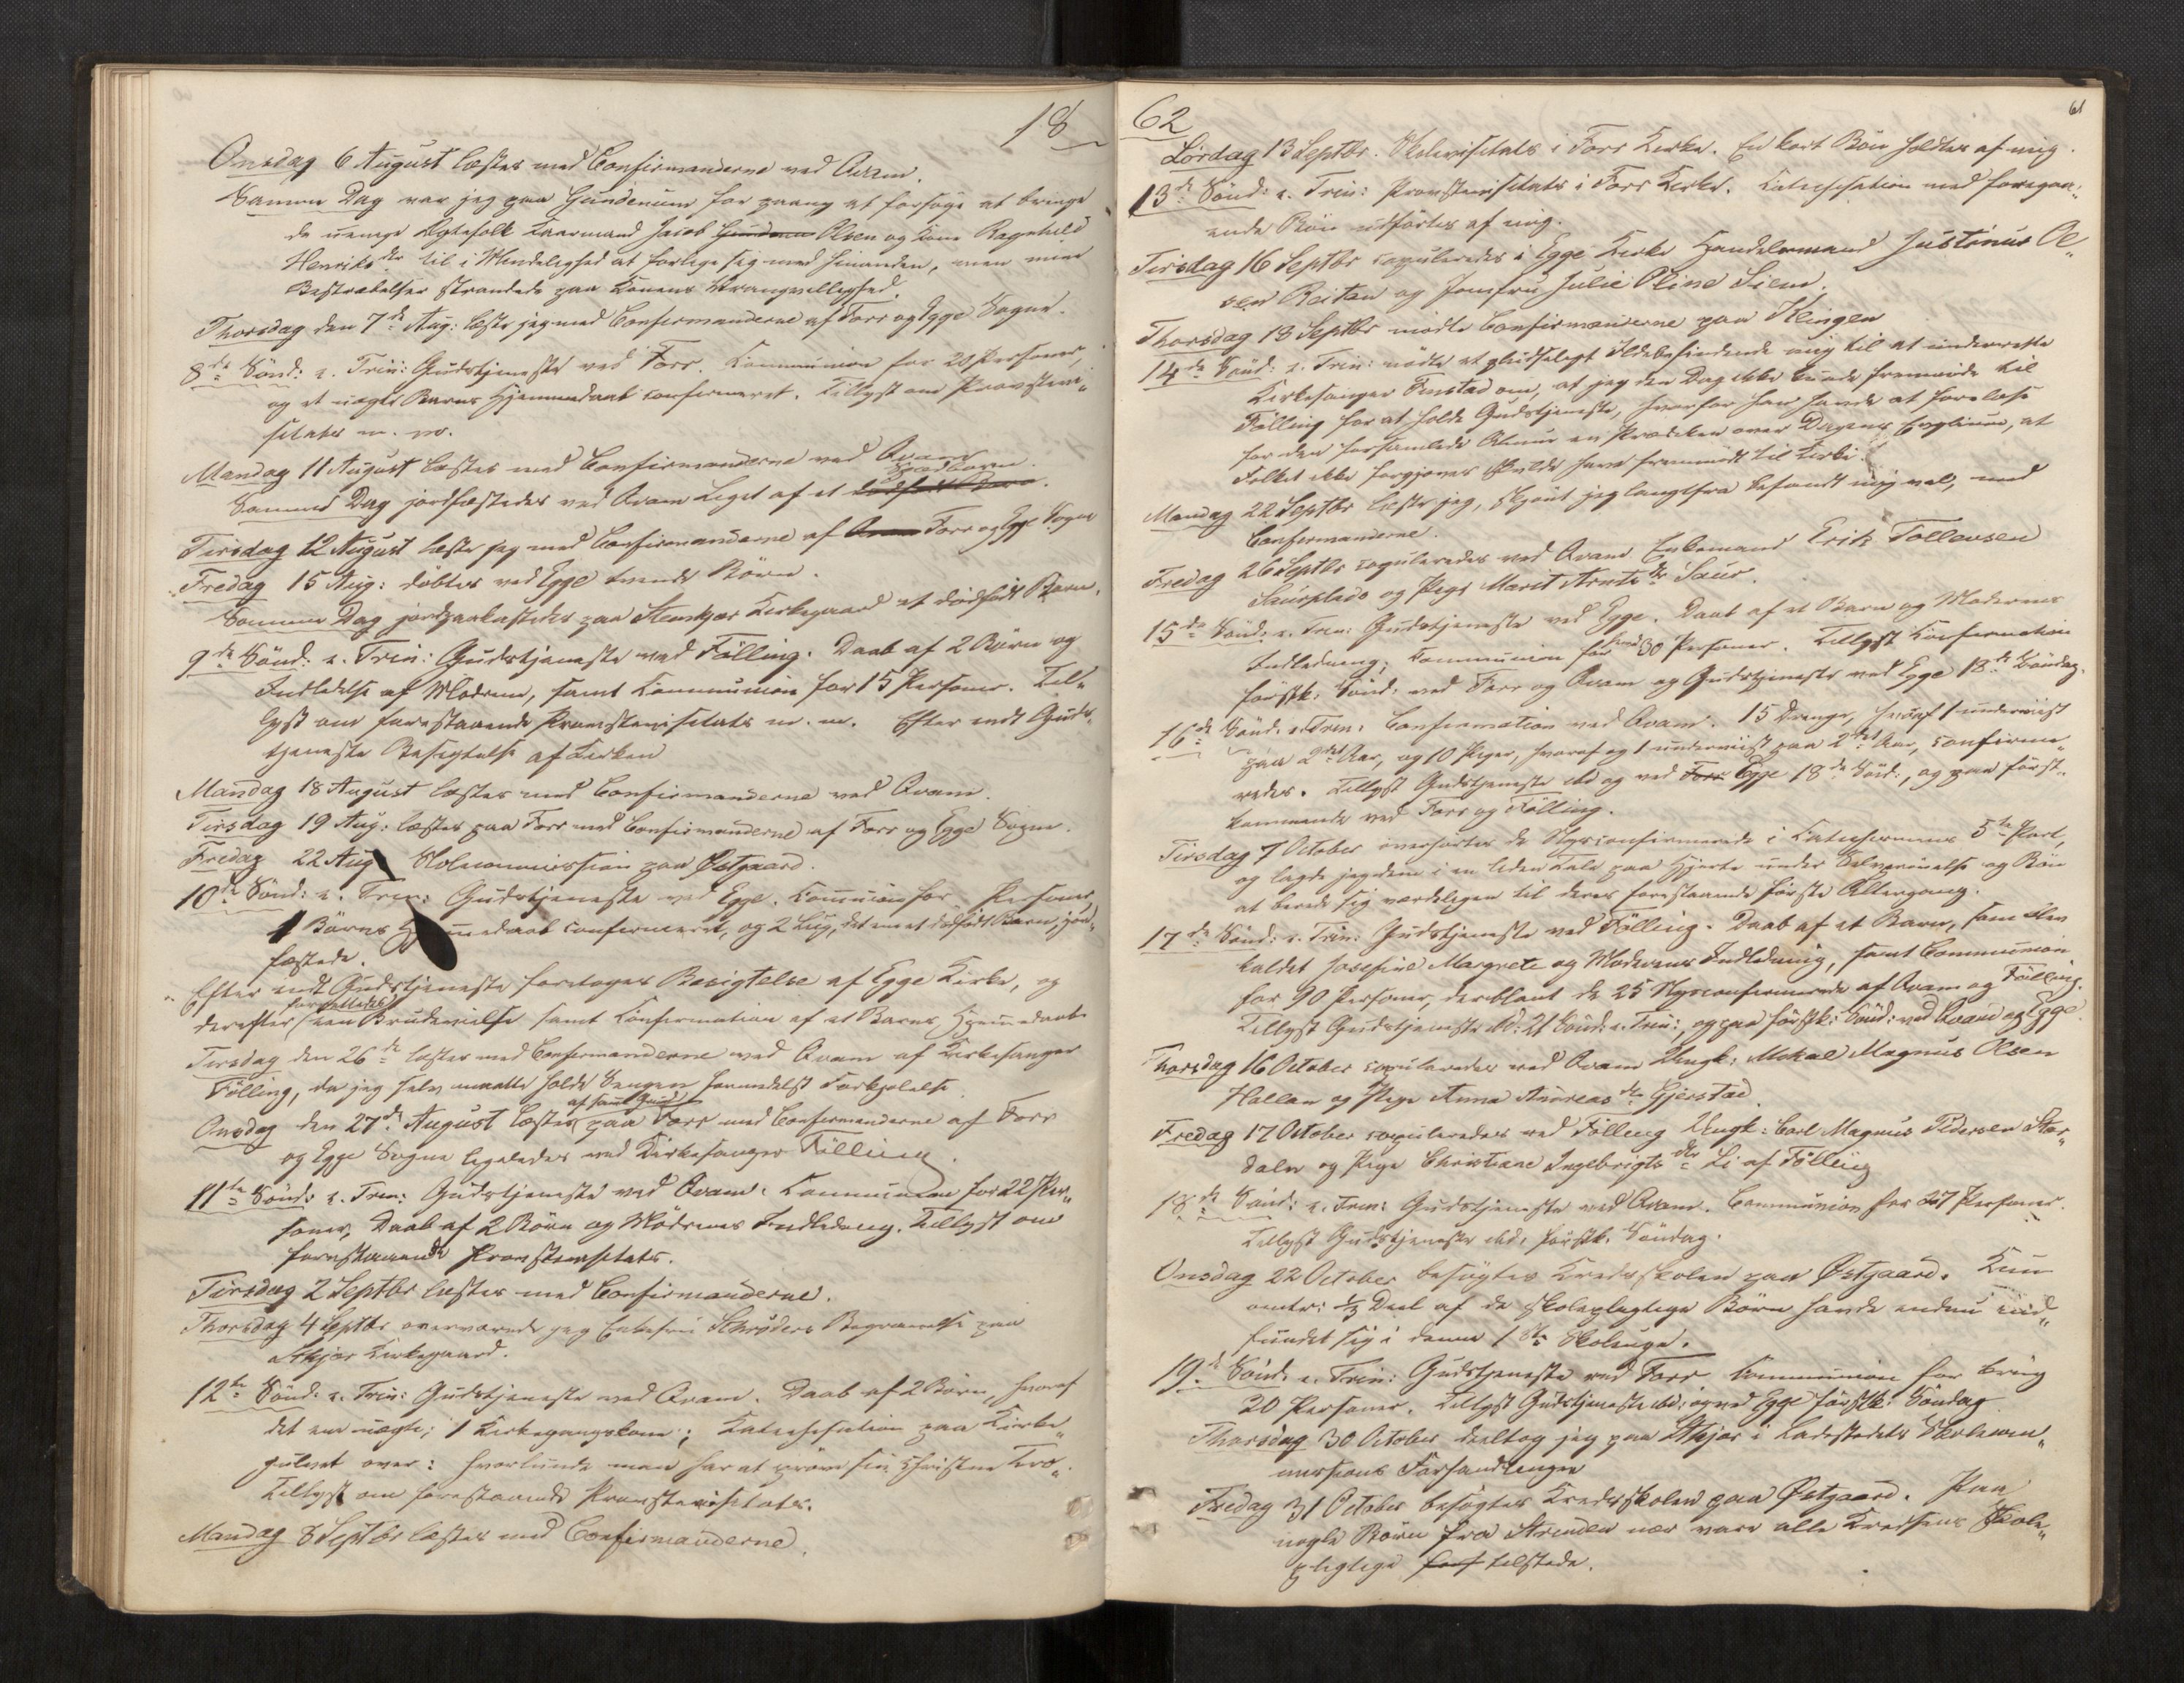 18
Onsdag 6 August læstes med Confirmanderne ved Qvam.
Samme Dag var jeg paa Gundenum for paany at forsøge at bringe
de uenige Ægtefolk Jacob Olsen og Kone Ragnhild
Henriksdtr til i Mindelighed at forlige sig med hinanden, men mine
Bestræbelser strandede paa Konens Vrangvillighed.
Thorsdag den 7de Aug: læste jeg med Confirmanderne af Forr og Egge Sogne.
8de Sönd: e. Trin: Gudstjeneste ved Forr. Communion for 20 Personer,
og et uægte Barns Hjemmedaab confirmeret. Tillyst om Provstevi„
sitats m. m.
Mandag 11 August læstes med Confirmanderne ved Qvam
Samme Dag jordfæstedes ved Qvam Liget af et dödfødt Barn Spædbarn.
Tirsdag 12 August læste jeg med Confirmanderne af Qvam Forr og Egge Sogne
Fredag 15 Aug: döbtes ved Egge tvende Börn.
Samme Dag jordpaakastedes paa Steenkjær Kirkegaard et dödfödt Barn.
9de Sönd: e. Trin: Gudstjeneste ved Fölling. Daab af 2 Börn og
Indledelse af Mödrene, samt Communion for 15 Personer. Til„
lyst om forestaaende Provstevisitats m. m. Efter endt Guds„
tjeneste Besigtelse af Kirken
Mandag 18 August læstes med Confirmanderne ved Qvam.
Tirsdag 19 Aug: læstes paa Forr med Confirmanderne af Forr og Egge Sogne.
Fredag 22 Aug Skolecommission paa Østgaard.
10de Sönd: e. Trin: Gudstjeneste ved Egge. Communion for Personer
1 Börns Hjemmedaab confirmeret, og 2 Liig, det ene et dödfödt Barn, jord„
fæstede.
„Efter endt Gudstjeneste foretoges Besigtelse af Egge Kirke, og
derefter forrettedes een Brudevielse samt Confirmation af et Barns Hjemmedaab.
Tirsdag den 26de læstes med Confirmanderne ved Qvam af Kirkesanger
Fölling, da jeg selv maatte holde Sengen formedelst Forkjølelse.
Onsdag den 27de August læstes af samme Grund paa Forr med Confirmanderne af Forr
og Egge Sogne ligeledes ved Kirkesanger Fölling.
11te Sönd: e. Trin: Gudstjeneste ved Qvam. Communion for 22 Per„
soner, Daab af 2 Börn og Mödrenes Indledning. Tillyst om
forestaaende Provstevisitats.
Tirsdag 2 Septbr læstes med Confirmanderne.
Thorsdag 4 Septbr overværede jeg Enkefru Schrøders Begravelse paa
Stkjær Kirkegaard.
12te Sönd: e. Trin: Gudstjeneste ved Qvam. Daab af 2 Börn, hvoraf
det ene uægte; 1 Kirkegangskone; Katechisation paa Kirke„
gulvet over: hvorlunde man har at pröve sin Christne Tro„
Tillyst om forestaaende Provstevisitats.
Mandag 8 Septbr læstes med Confirmanderne.
62
61
Lördag 13 Septbr. Skolevisitats i Forr Kirke. En kort Bön holdtes af mig.
13de Sönd: e. Trin: Provstevisitats i Forr Kirke. Katechisation med foregaa„
ende Bön udførtes af mig.
Tirsdag 16 Septbr copuleredes i Egge Kirke Handelsmand Justinus Ol„
sen Reitan og Jomfru Julie Oline Siem.
Thorsdag 18 Septbr mödte Confirmanderne paa Klingen
14de Sönd: e. Trin: nödte et pludseligt Ildebefindende mig til at underrette
Kirkesanger om, at jeg den Dag ikke kunde fremmöde til
Fölling for at holde Gudstjeneste, hvorfor han havde at forelæse
for den forsamlede Almue en Prædiken over Dagens Evglium, at
Folket ikke forgjæves skulde have fremmödt til Kirke.
Mandag 22 Septbr læste jeg, skjönt jeg langtfra befandt mig vel, med
Confirmanderne.
Fredag 26 Septbr copuleredes ved Qvam Enkemand Erik Tollevsen
Saursplads og Pige Marit Arntsdtr Saur.
15de Sönd: e. Trin: Gudstjeneste ved Egge. Daab af et Barn og Moderens
Indledning; Communion for 30 Personer. Tillyst Confirmation
förstk: Sönd: ved Forr og Qvam og Gudstjeneste ved Egge 18de Söndag.
16de Sönd. e. Trin: Confirmation ved Qvam. 15 Drenge, hvoraf 1 underviist
paa 2det Aar, og 10 Piger, hvoraf og 1 underviist paa 2det Aar, confirme„
redes. Tillyst Gudstjeneste ibd og ved Forr Egge 18de Sönd:, og paa först„
kommende ved Forr og Fölling.
Tirsdag 7 October overhørtes de Nysconfirmerede i Katechismens 5te Part,
og lagde jeg dem i en liden Tale paa Hjerte under Selvprövelse og Bön
at berede sig værdeligen til deres forestaaende förste Altergang.
17de Sönd: e. Trin: Gudstjeneste ved Fölling. Daab af et Barn, som blev
kaldet Josefine Margrete og Moderens Indledning, samt Communion
for 90 Personer, deriblant de 25 Nysconfirmerede af Qvam og Fölling.
Tillyst Gudstjeneste ibd: 21 Sönd: e. Trin:, og paa förstk: Sönd: ved Qvam og Egge.
Thorsdag 16 October copuleredes ved Qvam Ungk: Mikal Magnus Olsen
Hallan og Pige Anna Andreasdtr Gjerstad.
Fredag 17 October copuleredes ved Fölling Ungk: Carl Magnus Pedersen Stør„
dalen og Pige Christiane Ingebrigtsdtr Li af Fölling
18de Sönd: e. Trin: Gudstjeneste ved Qvam. Communion for 27 Personer.
Tillyst Gudstjeneste ibd: förstk. Söndag.
Onsdag 22 October besøgtes Kredsskolen paa Østgaard. Kun
omtr: 1/3 Deel af de skolepligtige Börn havde endnu ind„
fundet sig i denne 1ste Skoleuge.
19de Sönd. e. Trin: Gudstjeneste ved Forr Communion for
20 Personer. Tillyst Gudstjeneste ibd: og ved Egge förstk: Söndag
Thorsdag 30 October deeltog jeg paa Stkjær i Ladestedets Skolecom„
missions Forhandlinger
Fredag 31 October besögtes Kredsskolen paa Østgaard. Paa
nogle Börn fra Strinden nær vare alle Kredsens Skole„
pligtige tilstede.